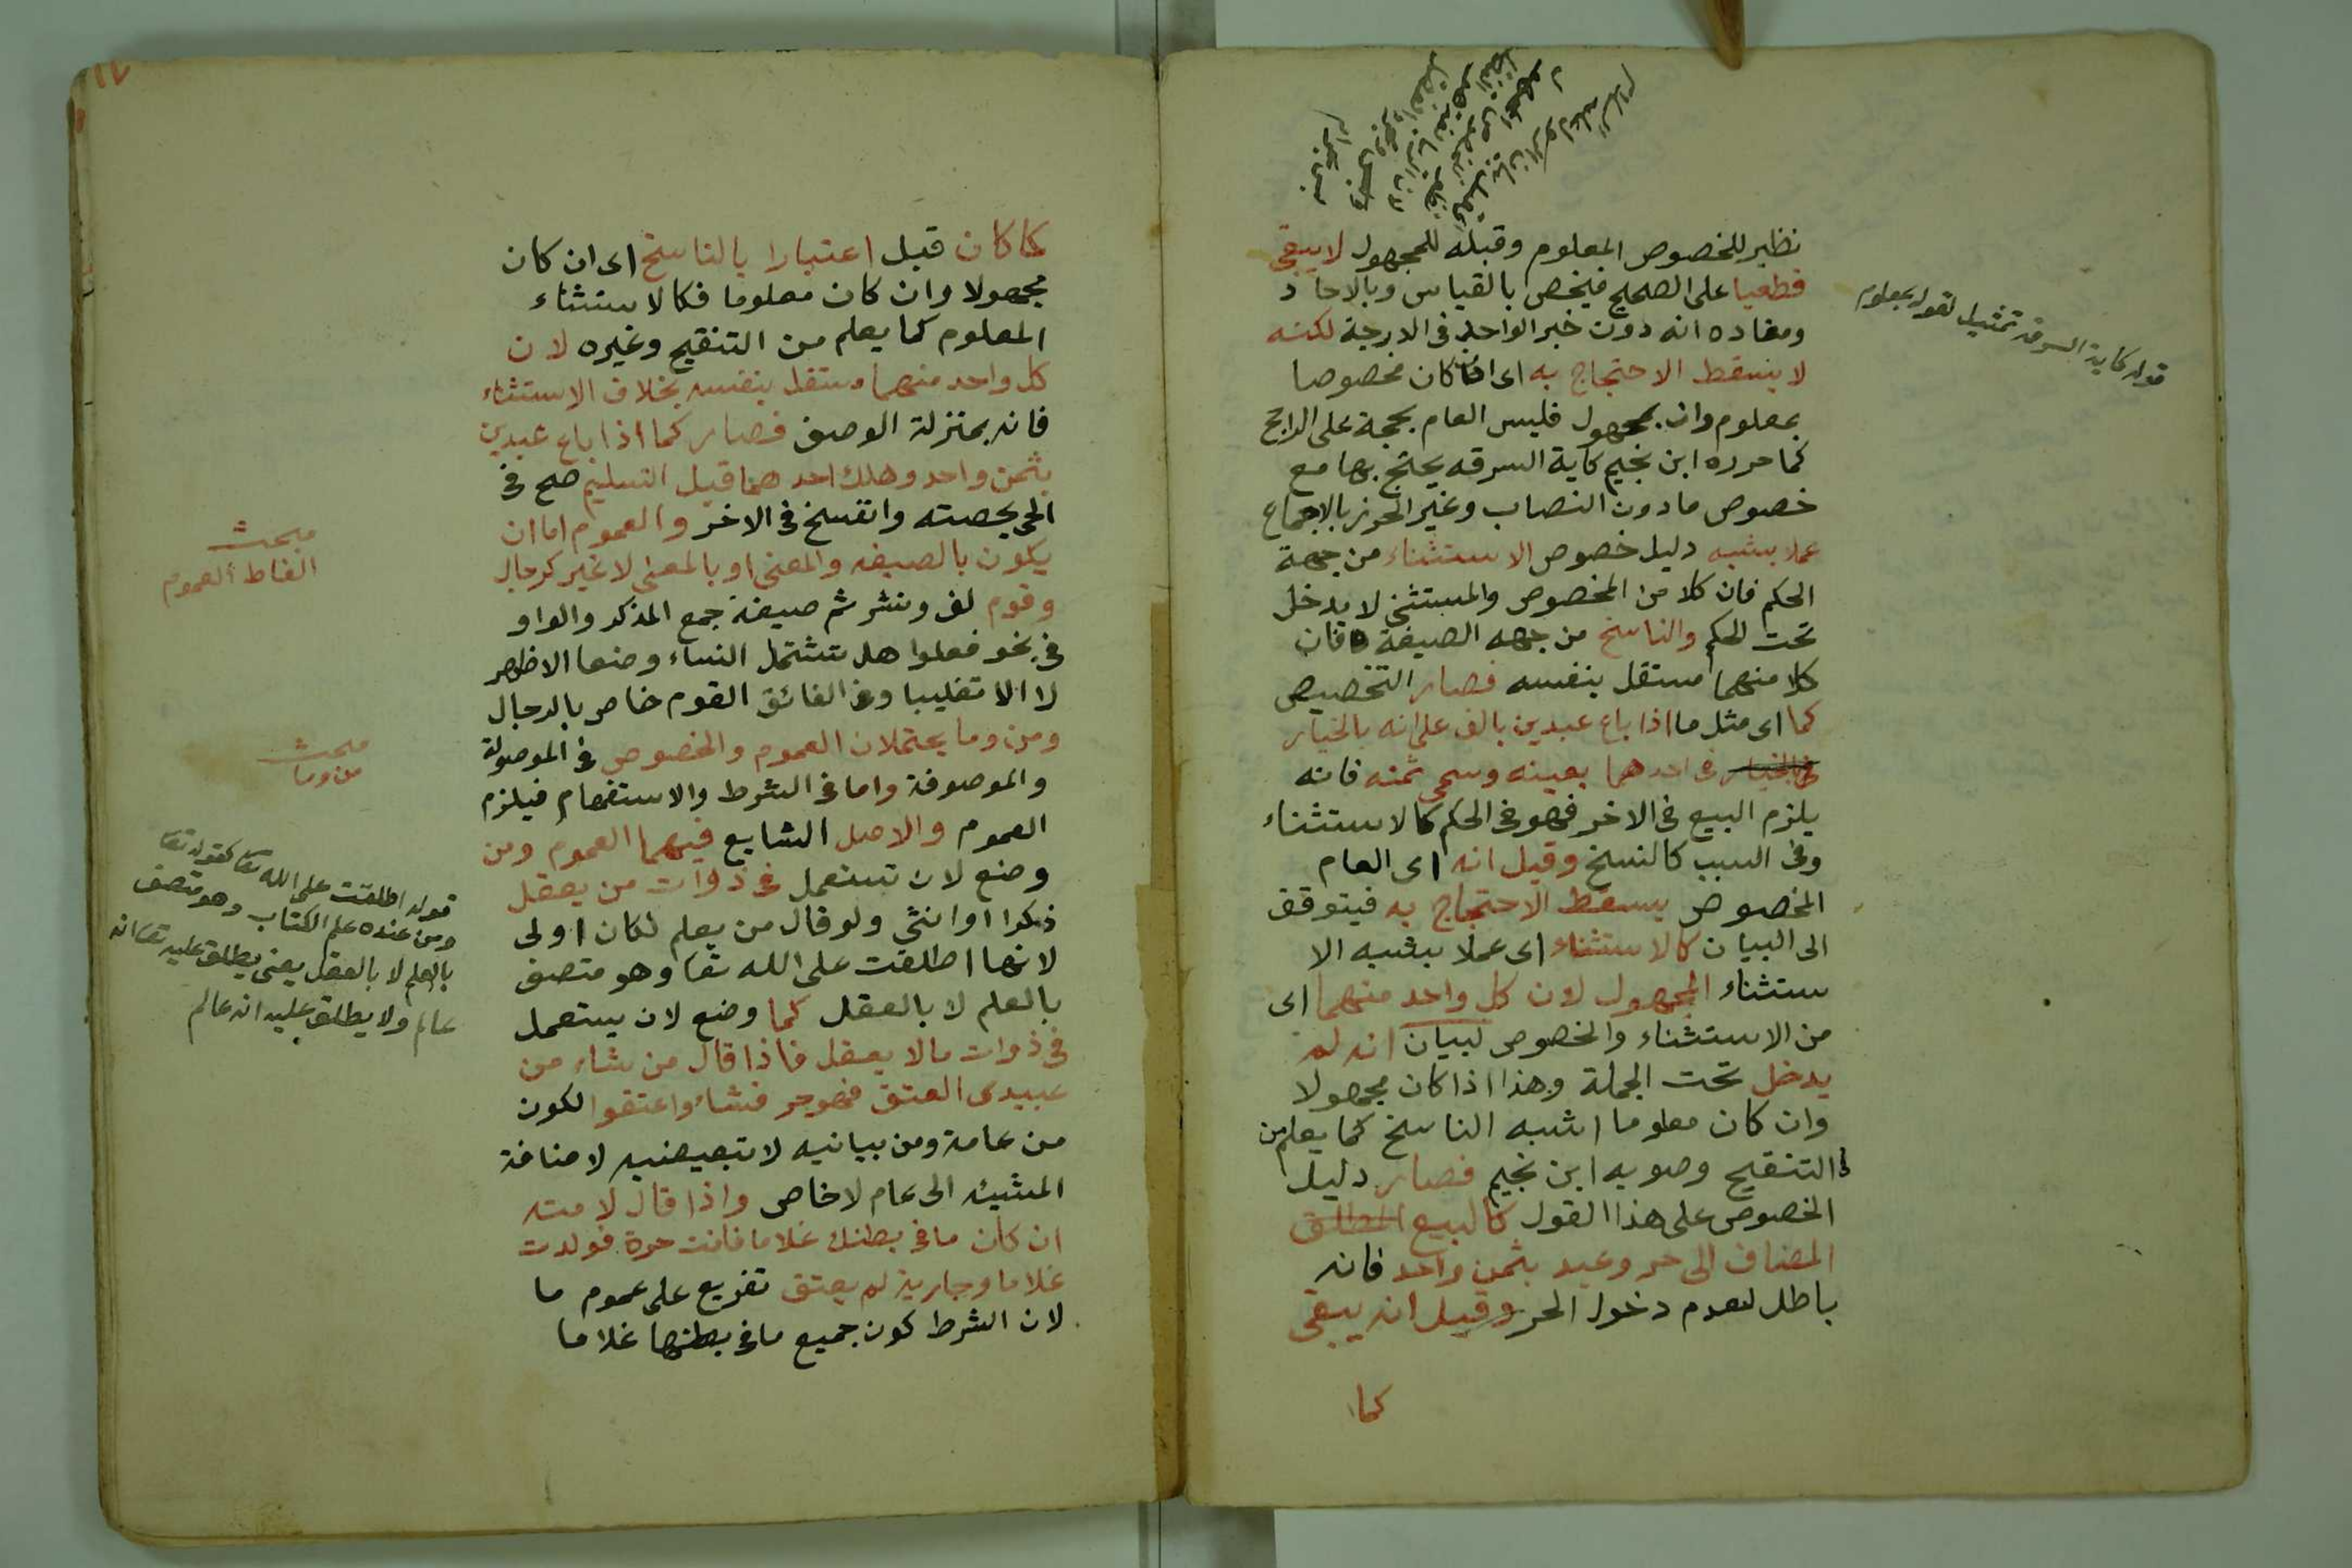 نظير للخصوص المعلوم وقبله للمجهول لا يبقى
قطعيا على الصحيح فيخص بالقياس وبالاحاد
ومفاده انه دون خبر الواحد فى الدرجة لكنه
لا يسقط الاحتجاج به اى ان كان مخصوصا
بمعلوم وان بمجهول فليس العام بحجة على الراجح
كما حرره ابن نجيم كاية السرقه يحتج بها مع
خصوص ما دون النصاب وغير المحرز بالاجماع
عملا بشبه دليل خصوص الاستثناء من جهة
الحكم فان كلا من المخصوص والمستثنى لا يدخل
تحت الحكم والناسخ من جهه الصيغة فان
كلا منهما مستقل بنفسه فصار التخصيص
كما اى مثل ما اذا باع عبدين بالف على انه بالخيار
فى احدهما بعينه وسمى ثمنه فانه
يلزم البيع فى الاخر فهو فى الحكم كالاستثناء
وفى السبب كالنسخ وقيل انه اى العام
المخصوص يسقط الاحتجاج به فيتوقف
الى البيان كالاستثناء اى عملا بشبه الا
ستثناء المجهول لان كل واحد منهما اى
من الاستثناء والخصوص لبيان انه لم
يدخل تحت الجملة وهذا اذا كان مجهولا
وان كان معلوما اشبه الناسخ كما يعلم من
التنقيح وصوبه ابن نجيم فصار دليل
الخصوص على هذا القول كالبيع المطلق
المضاف الى حر وعبد بثمن واحد فانه
باطل لعدم دخول الحر وقيل انه يبقى
كما
قوله كاية السرقه تمثيل لقوله بمعلوم
١٧
كما كان قبل اعتبارا بالناسخ اى ان كان
مجهولا وان كان معلوما فكالاستثناء
المعلوم كما يعلم من التنقيح وغيره لان
كل واحد منهما مستقل بنفسه بخلاف الاستثناء
فانه بمنزلة الوصف فصار كما اذا باع عبدين
بثمن واحد وهلك احدهما قبل التسليم صح فى
الحى بحصته وانفسخ فى الاخر والعموم اما ان
يكون بالصيغه والمعنى او بالمعنى لا غير كرجال
وقوم لف ونشر ثم صيغة جمع المذكر والواو
فى نحو فعلوا هل تشتمل النساء وضعا الاظهر
لا الا تغليبا وفى الفائق القوم خاص بالرجال
ومن وما يحتملان العموم والخصوص فى الموصولة
والموصوفة واما فى الشرط والاستفهام فيلزم
العموم والاصل الشايع فيهما العموم ومن
وضع لان تستعمل فى ذوات من يعقل
ذكرا او انثى ولو قال من يعلم لكان اولى
لانها اطلقت على الله تعا وهو متصف
بالعلم لا بالعقل كما وضع لان يستعمل
فى ذوات مالا يعقل فاذا قال من شاء من
عبيدى العتق فهو حر فشاؤا عتقوا لكون
من عامة ومن بيانيه لا تبعيضيه لاضافة
المشيئه الى عام لا خاص واذا قال لامته
ان كان ما فى بطنك غلاما فانت حرة فولدت
غلاما وجارية لم يعتق تفريع على عموم ما
لان الشرط كون جميع ما فى بطنها غلاما
مبحث
الفاظ العموم
مبحث
من وما
قوله اطلقت على الله تعا كقوله تعا
ومن عنده علم الكتاب وهو متصف
بالعلم لا بالعقل يعنى يطلق عليه تعا انه
عالم ولا يطلق عليه انه عالم